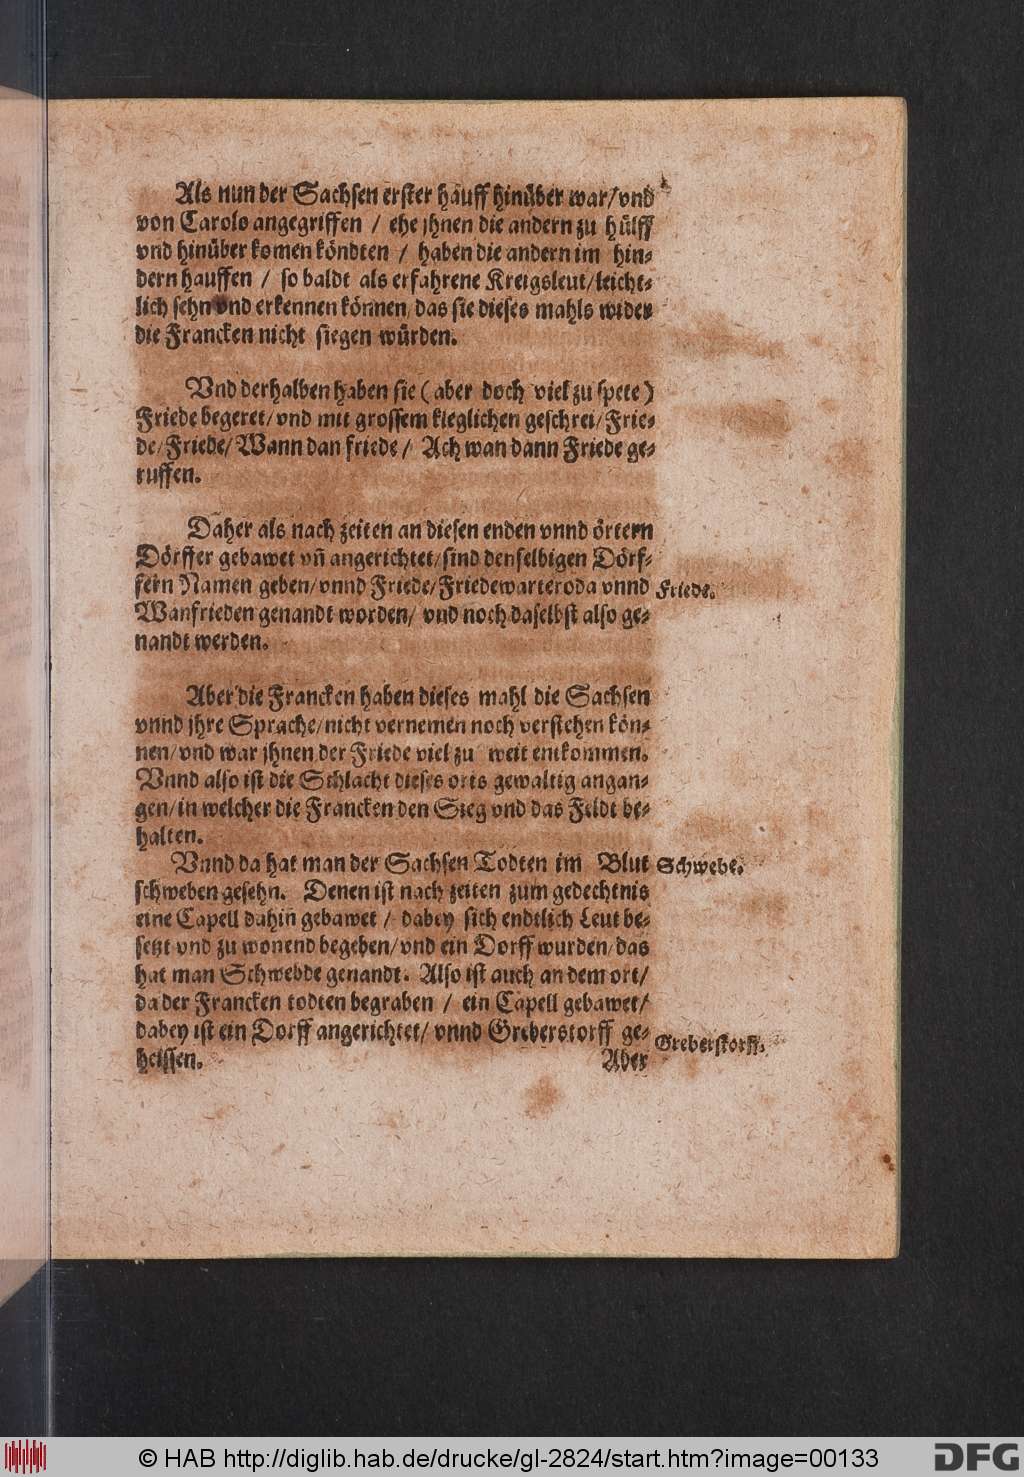 Als nun der Sachsen erster hauff hinüber war/vnd
von Carolo angegriffen / ehe jhnen die andern zu hülff
vnd hinüber komen köndten / haben die andern im hin-
dern hauffen / so baldt als erfahrene Kreigsleut/leicht-
lich sehn vnd erkennen können/das sie dieses mahls wider
die Francken nicht siegen würden.
Vnd derhalben haben sie (aber doch viel zu spete)
Friede begeret/vnd mit grossem kleglichen geschrei/Frie-
de/Friede/Wann dan friede/ Ach wan dann Friede ge-
ruffen.
Daher als nach zeiten an diesen enden vnnd örtern
Dörffer gebawet vn̄ angerichtet/sind denselbigen Dörf-
fern Namen geben/vnnd Friede/Friedewarteroda vnnd
Friede.
Wanfrieden genandt worden/ vnd noch daselbst also ge-
nandt werden.
Aber die Francken haben dieses mahl die Sachsen
vnnd jhre Sprache/nicht vernemen noch verstehen kön-
nen/vnd war jhnen der Friede viel zu weit entkommen.
Vnnd also ist die Schlacht dieses orts gewaltig angan-
gen/in welcher die Francken den Sieg vnd das Feldt be-
halten.
Vnnd da hat man der Sachsen Todten im Blut
Schwebe.
schweben gesehn. Denen ist nach zeiten zum gedechtnis
eine Capell dahin gebawet / dabey sich endtlich Leut be-
setzt vnd zu wonend begeben/vnd ein Dorff wurden/das
hat man Schwebde genandt. Also ist auch an dem ort/
da der Francken todten begraben / ein Capell gebawet/
dabey ist ein Dorff angerichtet/ vnnd Greberstorff ge-
Greberstorff.
heissen.
Aber
© HAB http://diglib.hab.de/drucke/gl-2824/start.htm?image=00133
DFG